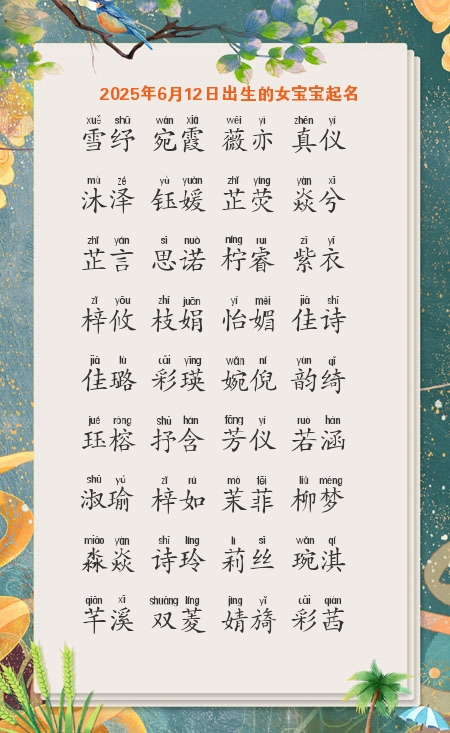 2025年6月12日出生的女宝宝起名
xuě shū wǎn xiá wēi yì zhēn yí
雪纾 宛霞 薇亦 真仪
mù zé yù yuàn zhǐ yíng yàn xī
沐泽 钰媛 芷荧 焱兮
zhǐ yán sī nuò níng ruì zǐ yī
芷言 思诺 柠睿 紫衣
zǐ yōu zhī juān yí mèi jiā shī
梓攸 枝娟 怡媚 佳诗
jiā lù cǎi yīng wǎn ní yùn qǐ
佳璐 彩瑛 婉倪 韵绮
jué róng shū hán fāng yí ruò hán
珏榕 抒含 芳仪 若涵
shū yú zǐ rú mò fēi liǔ mèng
淑瑜 梓如 茉菲 柳梦
miǎo yàn shī líng lì sī wǎn qí
淼焱 诗玲 莉丝 琬淇
qiān xī shuāng líng jìng yǐ cǎi qiàn
芊溪 双菱 婧旖 彩茜